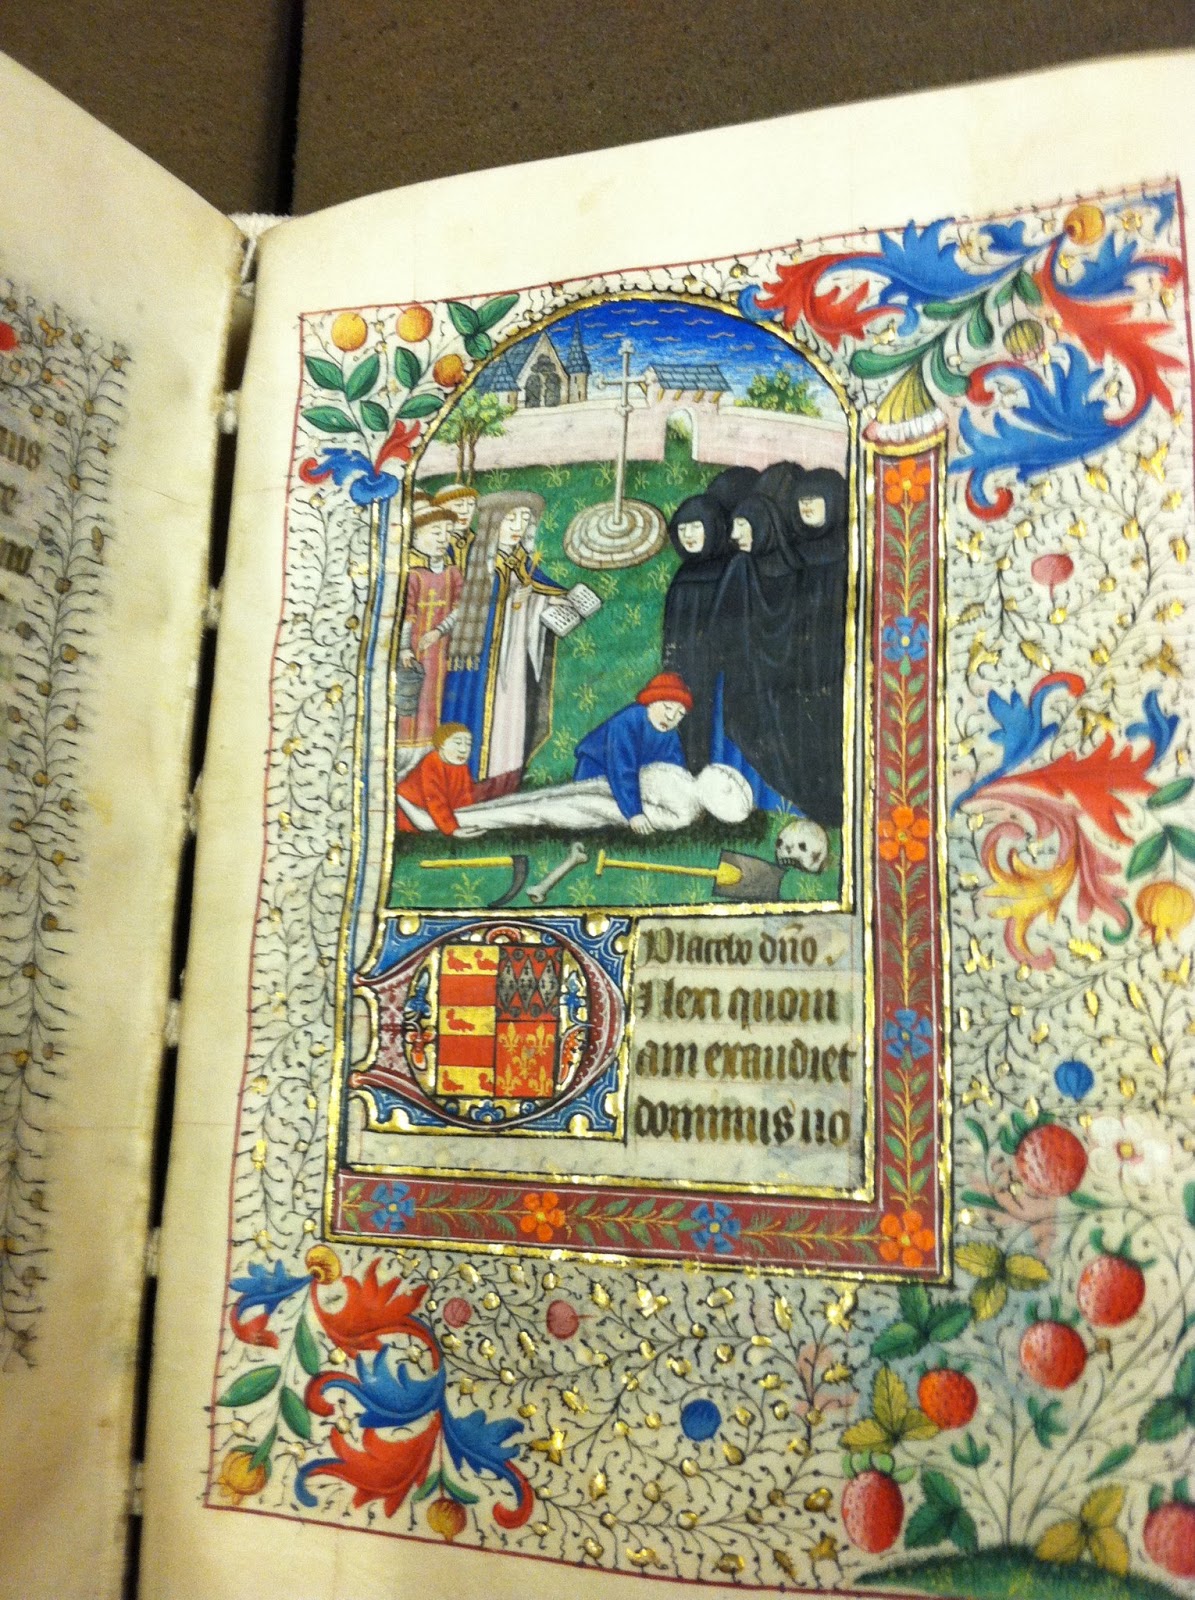 Placebo dño.
DIlexi quoni
am exaudiet
dominus uo